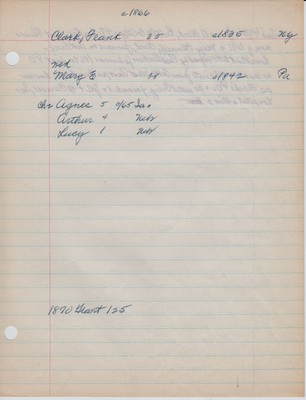 c1866
Clark, Frank 35 c1835 Ny
Mary E 28 c1842 Pa
Ch Agnes 5 c/65 Ia.
Arthur 4 Neb
Lucy 1 Neb
1870 Grant 125